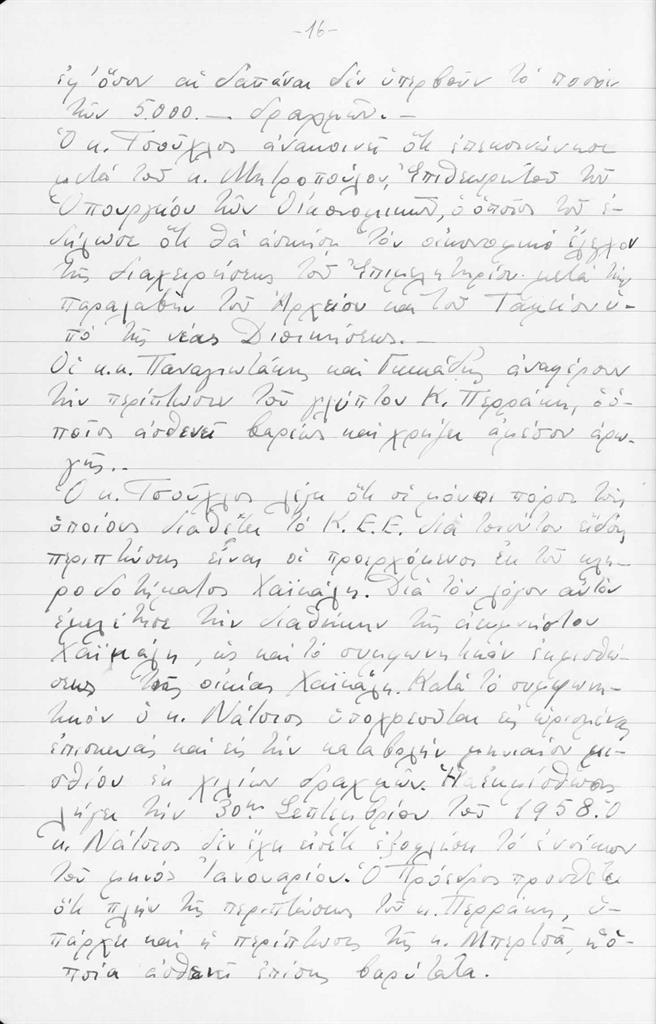 -16-
ἐφ' ὅσον αἱ δαπάναι δέν ὑπερβοῦν τό ποσόν
τῶν 5000.— δραχμῶν.—
Ὁ κ. Τσοῦχλος ἀνακοινεῖ ὅτι ἐπεκοινώνησε
μετά τοῦ κ. Μητροπούλου, Ἐπιθεωρητοῦ τοῦ
Ὑπουργείου τῶν Οἰκονομικῶν, ὁ ὁποῖος τοῦ ἐ-
δήλωσε ὅτι θά ἀσκήση τόν οἰκονομικό ἔλεγχον
τῆς διαχειρήσεως τοῦ Ἐπιμελητηρίου μετά τήν
παραλαβήν τοῦ Ἀρχείου καί τοῦ Ταμείου ὑ-
πό τῆς νέας Διοικήσεως.—
Οἱ κ.κ. Παναγιωτάκης καί ἀναφέρουν
τήν περίπτωσιν τοῦ γλύπτου Κ. Περράκη, ὁ ὁ-
ποῖος ἀσθενεῖ βαρέως καί χρήζει ἀμέσου ἀρω-
γῆς.—
Ὁ κ. Τσοῦχλος λέγει ὅτι οἱ μόνοι πόροι τούς
ὁποίους διαθέτει τό Κ.Ε.Ε. διά τοιοῦτον εἶδος
περιπτώσεις εἶναι οἱ προερχόμενοι ἐκ τοῦ κλη-
ροδοτήματος Χαϊκάλη. Διά τόν λόγον αὐτόν
ἐμελέτησε τήν διαθήκην τῆς ἀειμνήστου
Χαϊκάλη, ὡς καί τό συμφωνητικόν ἐκμισθώ-
σεως τῆς οἰκίας Χαϊκάλη. Κατά τό συμφωνη-
τικόν ὁ κ. Νάτσιος ὑποχρεοῦται εἰς ὡρισμένας
ἐπισκευάς καί εἰς τήν καταβολήν μηνιαίου μι-
σθίου ἐκ χιλίων δραχμῶν. Ἡ ἐκμίσθωσις
λήγει τήν 30ην Σεπτεμβρίου τοῦ 1958. Ὁ
κ. Νάτσιος δέν ἔχει εἰσέτι ἐξοφλήση τό ἐνοίκιον
τοῦ μηνός Ἰανουαρίου. Ὁ Πρόεδρος προσθέτει
ὅτι πλήν τῆς περιπτώσεως τοῦ κ. Περράκη, ὑ-
πάρχει καί ἡ περίπτωσις τῆς κ. Μπερτσᾶ, ἡ ὁ-
ποία ἀσθενεῖ ἐπίσης βαρύτατα.